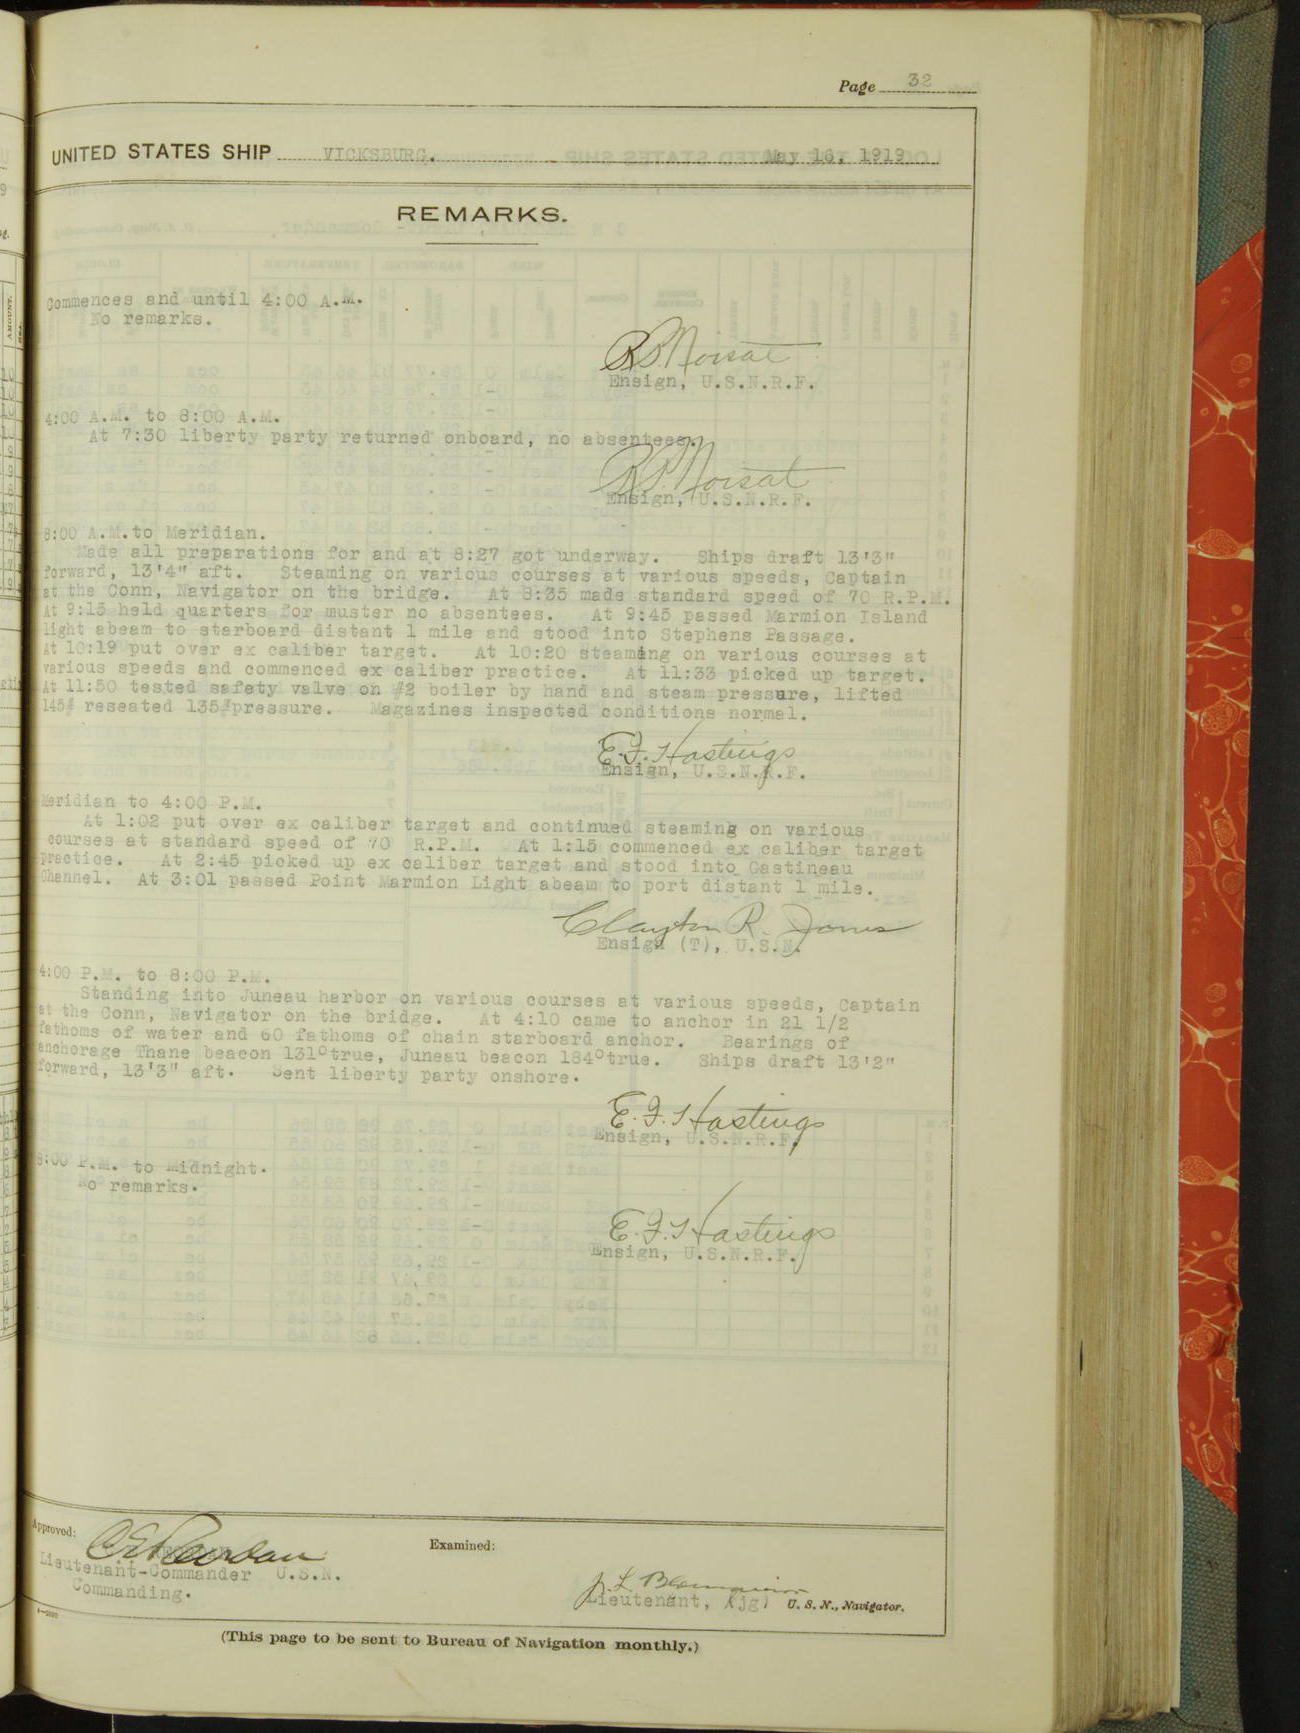 Page 32
UNITED STATES SHIP VICKSBURG. May 16, 1919
REMARKS.
Commences and until 4:00 A.M.
No remarks.
R.P. Moisat
Ensign, U.S.N.R.F.
4:00 A.M. to 8:00 A.M.
At 7:30 liberty party returned onboard, no absentees.
R.P. Moisat
Ensign, U.S.N.R.F.
8:00 A.M.to Meridian.
Made all preparations for and at 8:27 got underway. Ships draft 13'3"
forward, 13'4" aft. Steaming on various courses at various speeds, Captain
at the Conn, Navigator on the bridge. At 8:35 made standard speed of 70 R.P.M.
At 9:15 held quarters for muster no absentees. At 9:45 passed Marmion Island
light abeam to starboard distant 1 mile and stood into Stephens Passage.
At 10:19 put over ex caliber target. At 10:20 steaming on various courses at
various speeds and commenced ex caliber practice. At 11:33 picked up target.
At 11:50 tested safety valve on #2 boiler by hand and steam pressure, lifted
145# reseated 135#pressure. Magazines inspected conditions normal.
E.F. Hastings
Ensign, U.S.N.R.F.
Meridian to 4:00 P.M.
At 1:02 put over ex caliber target and continued steaming on various
courses at standard speed of 70 R.P.M. At 1:15 commenced ex caliber target
practice. At 2:45 picked up ex caliber target and stood into Gastineau
Channel. At 3:01 passed Point Marmion Light abeam to port distant 1 mile.
Clayton R. Jones
Ensign (T), U.S.N.
4:00 P.M. to 8:00 P.M.
Standing into Juneau harbor on various courses at various speeds, Captain
at the Conn, Navigator on the bridge. At 4:10 came to anchor in 21 1/2
fathoms of water and 60 fathoms of chain starboard anchor. Bearings of
anchorage Thane beacon 131°true, Juneau beacon 184°true. Ships draft 13'2"
forward, 13'3" aft. Sent liberty party onshore.
E.F. Hastings
Ensign, U.S.N.R.F.
8:00 P.M. to Midnight.
No remarks.
E.F. Hastings
Ensign, U.S.N.R.F.
Approved: Examined:
Lieutenant-Commander U.S.N.
Commanding.
Lieutenant, (jg) U. S. N., Navigator.
(This page to be sent to Bureau of Navigation monthly.)